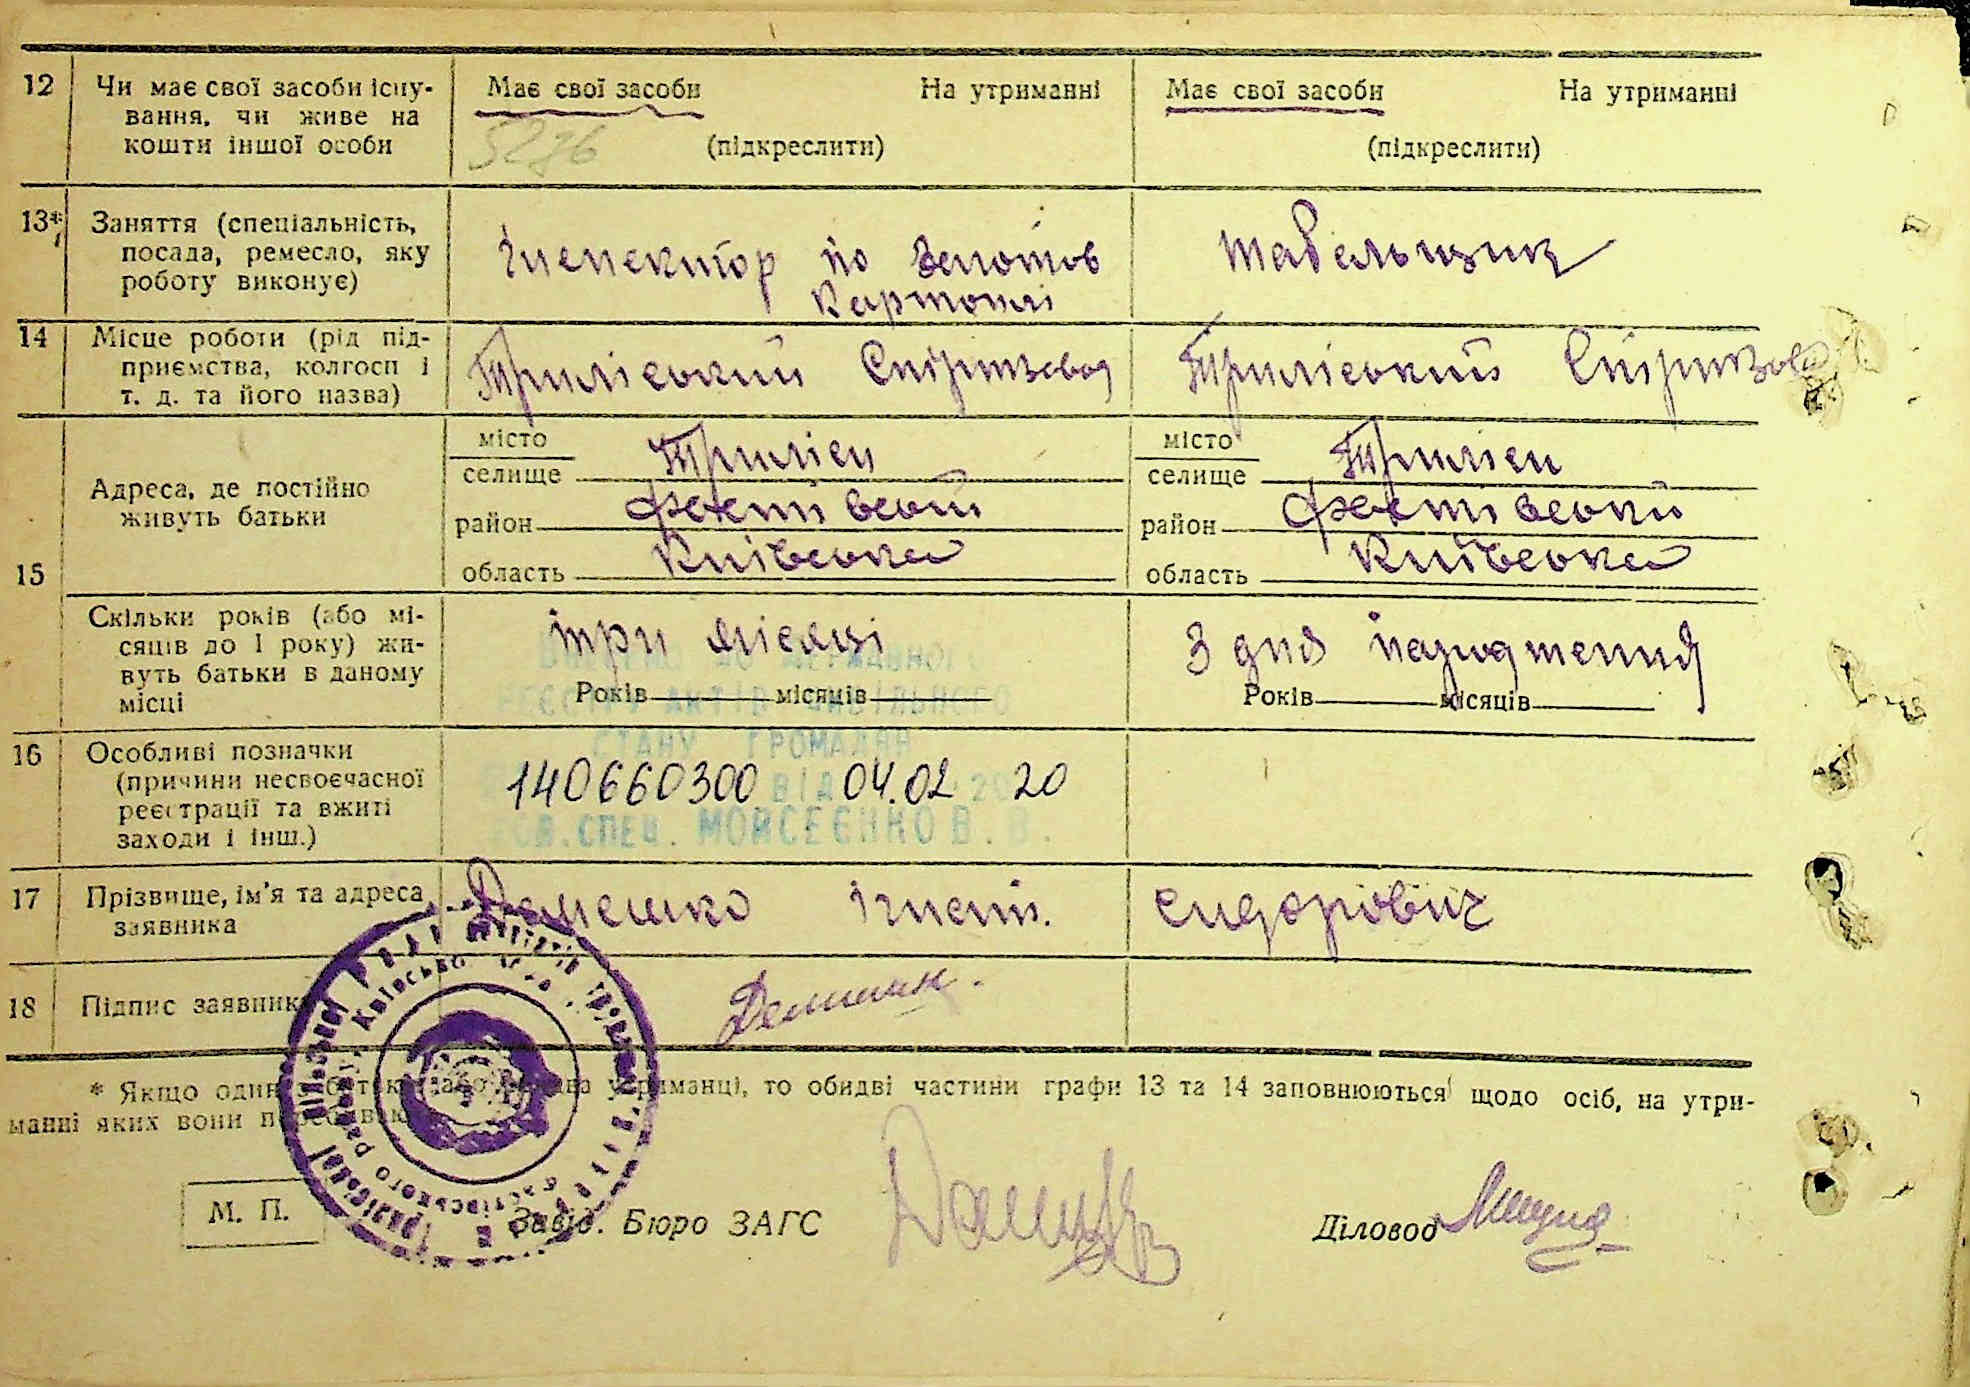 12 Чи має свої засоби існу- Має свої засоби На утриманні Має свої засоби На утриманні
вання, чи живе на
кошти іншої особи 5276 (підкреслити) (підкреслити)
13* Заняття (спеціальність,
посада, ремесло, яку Інспектор по Табельщик
роботу виконує) Картоплі
14 Місце роботи (рід під-
приємства, колгосп і Трилісський Спиртзавод Трилісський Спиртзавод
т. д. та його назва)
місто Триліси місто Триліси
селище селище
Адреса, де постійно
живуть батьки район район
15 область Київська область Київська
Скільки років (або мі-
сяців до 1 року) жи- три місяці З дня народження
вуть батьки в даному
місці Років місяців Років місяців
ВНЕСЕНО ДО ДЕРЖАВНОГО
РЕЄСТРУ АКТІВ ЦИВІЛЬНОГО
СТАНУ ГРОМАДЯН
16 Особливі позначки
(причини несвоєчасної 140660300 ВІД 04.02 2020
реєстрації та вжиті
заходи і інш.) ПРОВ.СПЕЦ. МОЙСЕЄНКО В. В.
17 Прізвище, ім'я та адреса Демешко Ігнат. Сидорович
заявника
18 Підпис заявника
* Якщо один з батьків або обидва утриманці, то обидві частини графи 13 та 14 заповнюються щодо осіб, на утри-
манні яких вони перебувають
М. П. Завід. Бюро ЗАГС Діловод